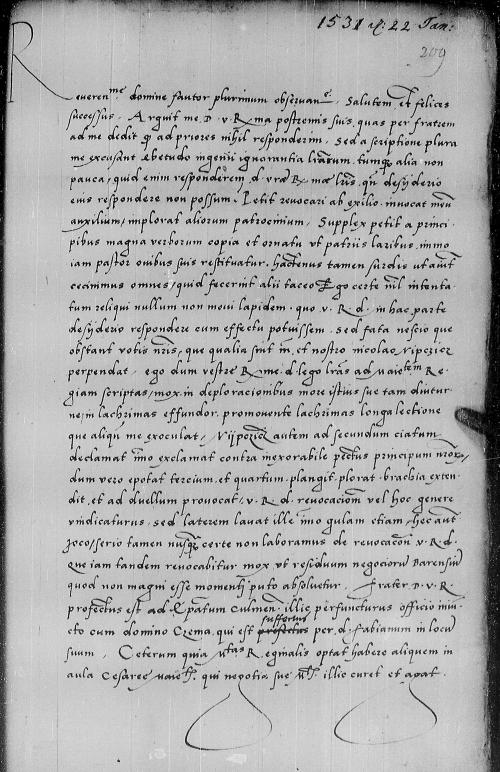 1531 22 Jan:
209
Reveren^me domine fautor plurimum observan^e. Salutem et felices
successus. Arguit me D. v. R^ma postremis suis, quas per fratrem
ad me dedit q ad priores nihil responderim, Sed a scriptione plura
me excusant hebetudo ingenii ignorantia lrarum, tumque alia non
pauca, quid enim responderem d. vre R^me lris, qn desyderio
eius respondere non possum. Petit revocari ab exilio, invocat meu
auxilium, implorat aliorum patrocinium, Supplex petit a princi
pibus magna verborum copia et ornatu vt patriis laribus immo
iam pastor ovibus suis restituatur. hactenus tamen surdis ut aiut
cecinimus omnes, quid fecerint alii taceo Ego certe nil intenta
tum reliqui nullum non movi lapidem, quo v. R. d. in hac parte
desyderio respondere cum effectu potuissem, sed fata nescio que
obstant votis nris, que qualia sint in et nostro nicolao Nipczicz
perpendat, ego dum vestre R^me. d. lego lras ad maie^tem Re
giam scriptas, mox in deploracionibus more istius sue tam diutur
ne, in lachrimas effundor. promovente lachrimas longa lectione
que aliqn me exoculat, Nypczicz autem ad secundum ciatum
declamat imo exclamat contra inexorabile pectus principum nrorum,
dum vero epotat tercium, et quartum, plangit plorat, brachia exten
dit, et ad duellum provocat, v. R. d. revocacionem vel hoc genere
vindicaturus, sed laterem lavat ille imo gulam etiam, hec aut
joco, serio tamen nusq certe non laboramus de revocacon v. R. d.
que iam tandem revocabitur mox vt residuum negocioru Barensiu
quod non magni esse momenti puto absoluetur. Frater D. v. R.
profectus est ad culmen, illic perfuncturus officio iniu
cto cum domino Crema, qui est suffectus per d. fabianum in locu
suum, Ceterum quia M^tas Reginalis optat habere aliquem in
aula Cesaree maie^tis, qui negotia sue M^tis. illic curet et agat.